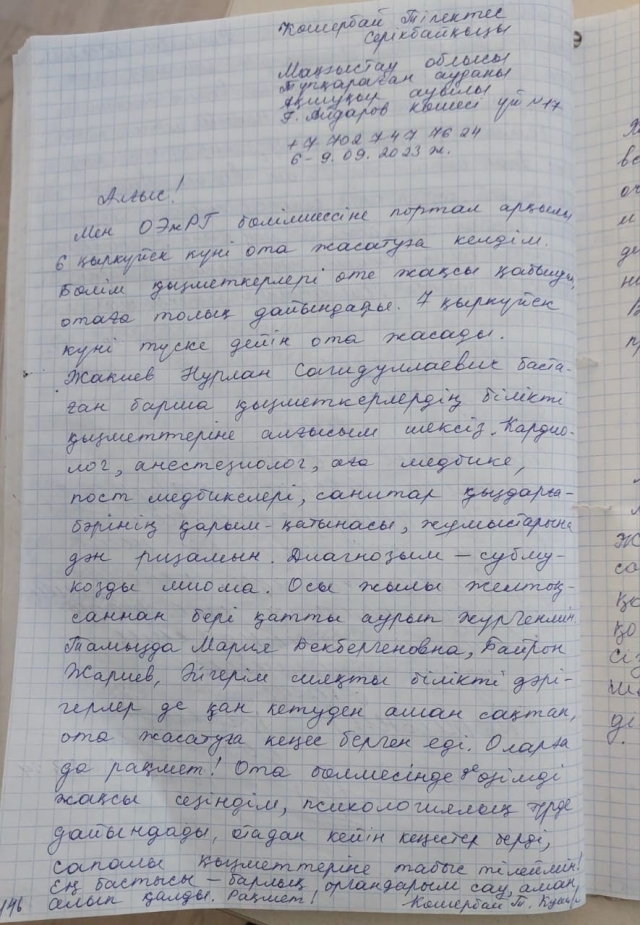 Кошербай Тілектес
Серікбайқызы
Маңғыстау облысы
Түпқараған ауданы
Ақшұқыр ауылы
Г. Айдаров көшесі үй №17
+7 702 747 76 24
6-9.09.2023 ж.
Алғыс!
Мен ОЭжРГ бөлімшесіне портал арқылы
6 қыркүйек күні ота жасатуға келдім.
Бөлім қызметкерлері өте жақсы қабылдап,
отаға толық дайындады. 7 қыркүйек
күні түске дейін ота жасады.
Жакиев Нурлан Сагидуллаевич баста-
ған барша қызметкерлердің білікті
қызметтеріне алғысым шексіз. Кардио-
лог, анестезиолог, аға медбике,
пост медбикелері, санитар қыздарға -
бәрінің қарым-қатынасы, жұмыстарына
дән ризамын. Диагнозым - субму-
козды миома. Осы жылы желтоқ-
саннан бері қатты ауырып жүргенмін.
Тамызда Мария Бекбергеновна, Байрон
Жариев, Әйгерім сияқты білікті дәрі-
герлер де қан кетуден аман сақтап,
ота жасатуға кеңес берген еді. Оларға
да рақмет! Ота бөлмесінде де өзімді
жақсы сезіндім, психологиялық түрде
дайындады, отадан кейін кеңестер берді,
сапалы қызметтеріне табыс тілеймін!
Ең бастысы - барлық органдарым сау, аман
алып қалды. Рақмет! Кошербай Т.
146